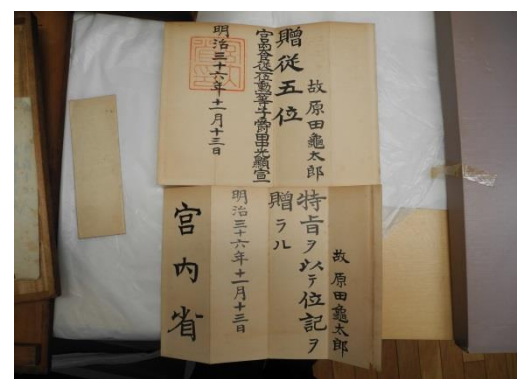 故原田龜太郎
贈従五位
宮內大臣従二位勲一等子爵田中光顯宣
明治三十六年十一月十三日
故原田龜太郎
特旨ヲ以テ位記ヲ
贈ラル
明治三十六年十一月十三日
宮内省